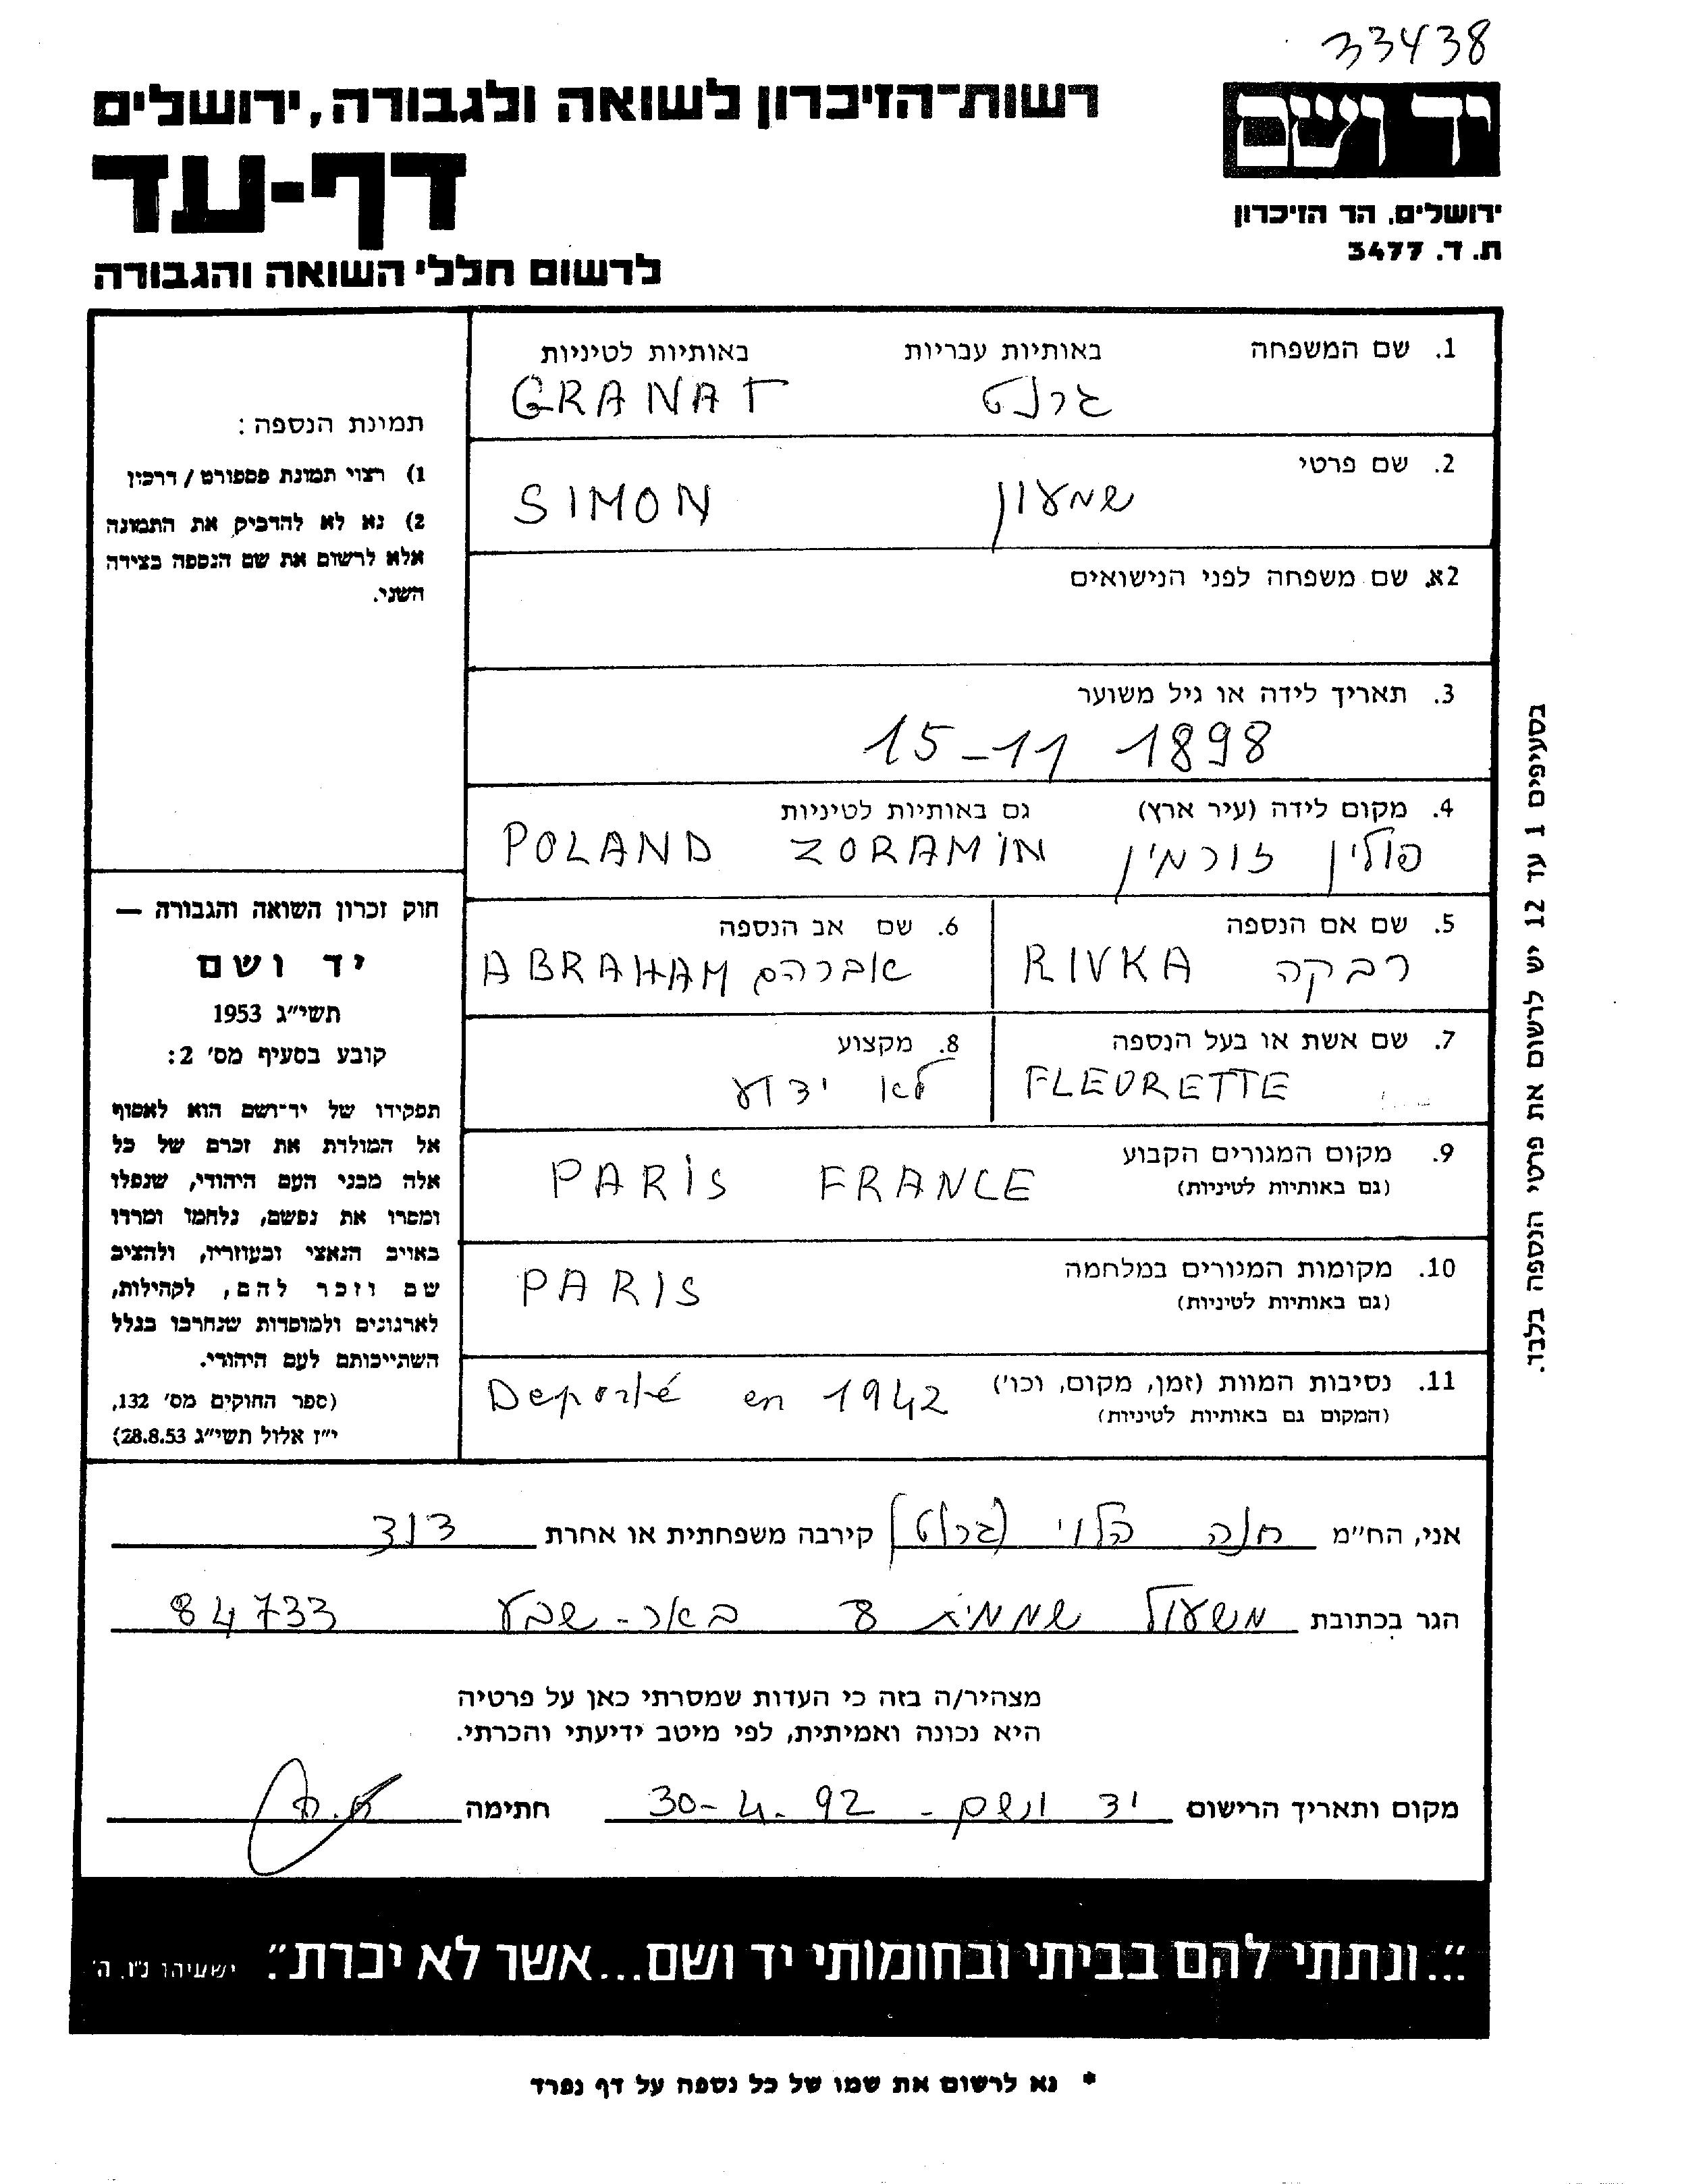 33438
רשות־הזיכרון לשואה ולגבורה, ירושלים
יד ושם
דף-עד
ירושלים, הר הזיכרון
ת. ד. 3477
לרשום חללי השואה והגבורה
1. שם המשפחה באותיות עבריות באותיות לטיניות
גרנט GRANAT
2. שם פרטי
שמעון SIMON
2א. שם משפחה לפני הנישואים
3. תאריך לידה או גיל משוער
15-11 1898
4. מקום לידה (עיר ארץ) גם באותיות לטיניות
פולין זורמין ZORAMIN POLAND
5. שם אם הנספה
רבקה RIVKA
6. שם אב הנספה
אברהם ABRAHAM
7. שם אשת או בעל הנספה
FLEURETTE
8. מקצוע
לא ידוע
9. מקום המגורים הקבוע
(גם באותיות לטיניות)
PARIS FRANCE
10. מקומות המגורים במלחמה
(גם באותיות לטיניות)
PARIS
11. נסיבות המוות (זמן, מקום, וכו')
(המקום גם באותיות לטיניות)
Deporté en 1942
תמונת הנספה:
1) רצוי תמונת פספורט / דרכון
2) נא לא להדביק את התמונה
אלא לרשום את שם הנספה בצידה
השני.
חוק זכרון השואה והגבורה —
יד ושם
תשי"ג 1953
קובע בסעיף מס' 2:
תפקידו של יד־ושם הוא לאסוף
אל המולדת את זכרם של כל
אלה מבני העם היהודי, שנפלו
ומסרו את נפשם, נלחמו ומרדו
באויב הנאצי ובעוזריו, ולהציב
שם וזכר להם, לקהילות,
לארגונים ולמוסדות שנחרבו בגלל
השתייכותם לעם היהודי.
(ספר החוקים מס' 132,
י"ז אלול תשי"ג 28.8.53)
בסעיפים 1 עד 12 יש לרשום את פרטי הנספה בלבד.
אני, הח"מ חנה הלוי (גרנט) קירבה משפחתית או אחרת דוד
הגר בכתובת משעול שממית 8 באר-שבע 84733
מצהיר/ה בזה כי העדות שמסרתי כאן על פרטיה
היא נכונה ואמיתית, לפי מיטב ידיעתי והכרתי.
מקום ותאריך הרישום יד ושם - 30-4-92 חתימה
"...ונתתי להם בביתי ובחומותי יד ושם...אשר לא יכרת". ישעיהו נ"ו, ה'
* נא לרשום את שמו של כל נספה על דף נפרד